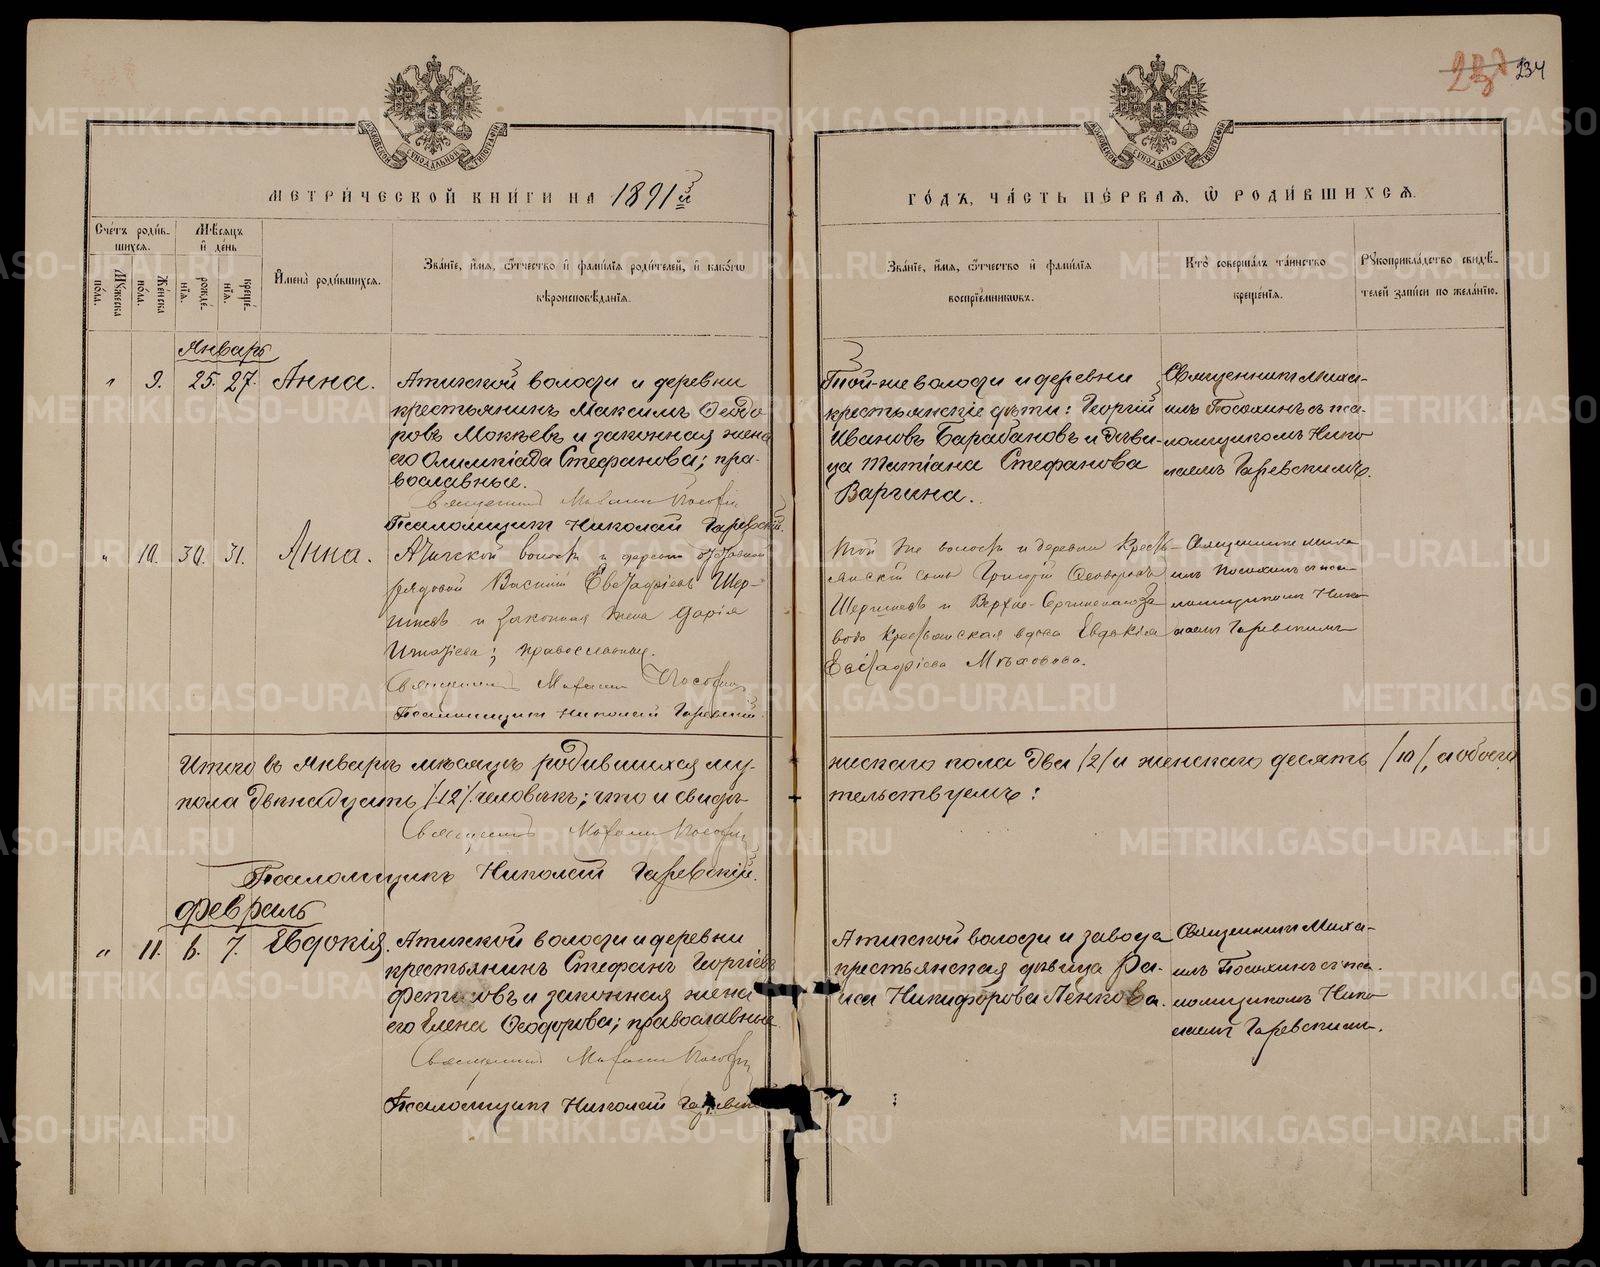 234
МОСКОВСКОЙ СѴНОДАЛЬНОЙ ТИПОГРАФІИ
МОСКОВСКОЙ СѴНОДАЛЬНОЙ ТИПОГРАФІИ
МЕТРИ́ЧЕСКОЙ КНИ́ГИ НА 1891й
ГО́ДЪ, ЧА́СТЬ ПЕ́РВАЯ, Ѡ РОДИ́ВШИХСЯ.
Сче́тъ роди́в-
шихся.
Мѣ́сяцъ
и҆ де́нь
Му́жеска
по́ла.
Же́нска
по́ла.
рожде́-
нїя.
креще́-
нїя.
И҆мена̀ роди́вшихся.
Зва́нїе, и҆́мя, ѻ҆́тчество и҆ фами́лїя роди́телей, и҆ како́гѡ
вѣроисповѣ́данїя.
Зва́нїе, и҆́мя, ѻ҆́тчество и҆ фами́лїя
воспрїе́мникѡвъ.
Кто̀ соверша́лъ та́инство
креще́нїя.
Рꙋкоприкла́дство свидѣ́-
телей за́писи по жела́нїю.
Январь
" 9. 25. 27. Анна.
Атигской волости и деревни
крестьянинъ Максимъ Ѳеодо
ровъ Мокѣевъ и законная жена
его Олимпіада Стефанова; пра-
вославные.
Священник Михаил
Псаломщикъ Николай Гаревскій.
Той-же волости и деревни
крестьянскіе дѣти: Георгій
Ивановъ Барабановъ и дѣви-
ца Татіана Стефанова
Варгина.
Священникъ Миха-
илъ Посохинъ съ пса-
ломщикомъ Нико
лаемъ Гаревскимъ.
" 10. 30. 31. Анна.
Атигской волости и деревни отставной
рядовой Василій Евстафіевъ Шер-
шневъ и законная жена Дарія
Игнатіева; православные.
Священникъ Михаил
Псаломщикъ Николай Гаревскій.
Той же волости и деревни крестья-
янскій сынъ Григорій Ѳеодоровъ
Шершневъ и Верхне-Сергинскаго за
вода крестьянская вдова Евдокія
Евстафіева Мѣховова.
Священникъ Миха
илъ Посохинъ съ пса
ломщикомъ Нико
лаемъ Гаревскимъ
Итого въ Январѣ мѣсяцѣ родившихся му-
жескаго пола два /2/ и женскаго десять /10/, а обоего
пола двѣнадцать /12/ человѣкъ; что и свидѣ-
тельствуемъ:
Священникъ Михаил
Псаломщикъ Николай Гаревскій.
Февраль
" 11. 6. 7. Евдокія.
Атигской волости и деревни
крестьянинъ Стефанъ Георгіевъ
Фетисовъ и законная жена
его Елена Ѳеодорова; православные
Священникъ Михаил
Псаломщикъ Николай
Атигской волости и завода
крестьянская дѣвица Ра-
иса Никифорова Пенкова.
Священникъ Миха-
илъ Посохинъ съ пса.
ломщикомъ Нико
лаемъ Гаревскимъ.
METRIKI.GASO-URAL.RU